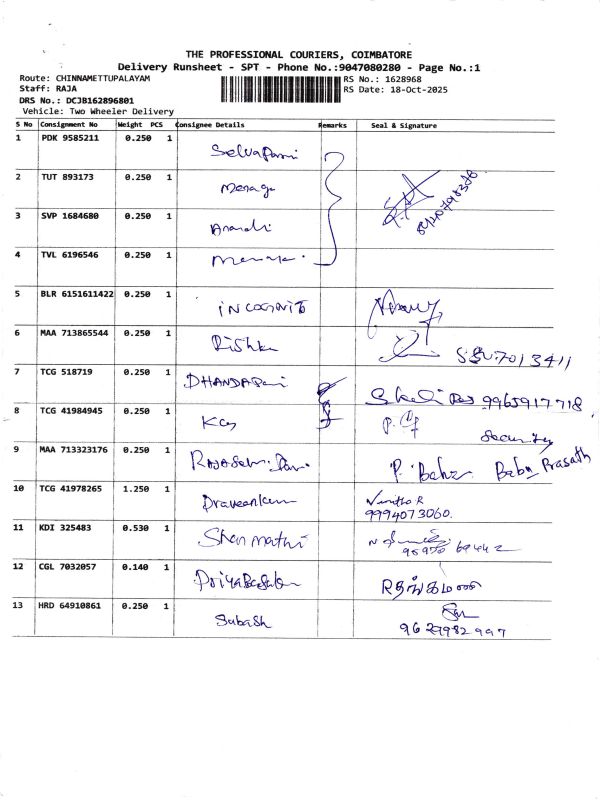 THE PROFESSIONAL COURIERS, COIMBATORE
Delivery Runsheet - SPT - Phone No.:9047080280 - Page No.:1
Route: CHINNAMETTUPALAYAM RS No.: 1628968
Staff: RAJA RS Date: 18-Oct-2025
DRS No.: DCJB162896801
Vehicle: Two Wheeler Delivery
S No Consignment No Weight PCS Consignee Details Remarks Seal & Signature
1 PDK 9585211 0.250 1 Selvapani
2 TUT 893173 0.250 1
3 SVP 1684680 0.250 1
4 TVL 6196546 0.250 1
5 BLR 6151611422 0.250 1 INCOGNITO
6 MAA 713865544 0.250 1 Rishka
7 TCG 518719 0.250 1 DHANDAPani 9965917718
8 TCG 41984945 0.250 1 Security
9 MAA 713323176 0.250 1 P. Babu Babu Prasath
10 TCG 41978265 1.250 1 Praveenkum
9994073060.
11 KDI 325483 0.530 1 Shanmathi
12 CGL 7032057 0.140 1 தங்கமணி
13 HRD 64910861 0.250 1 Subash
9629982997